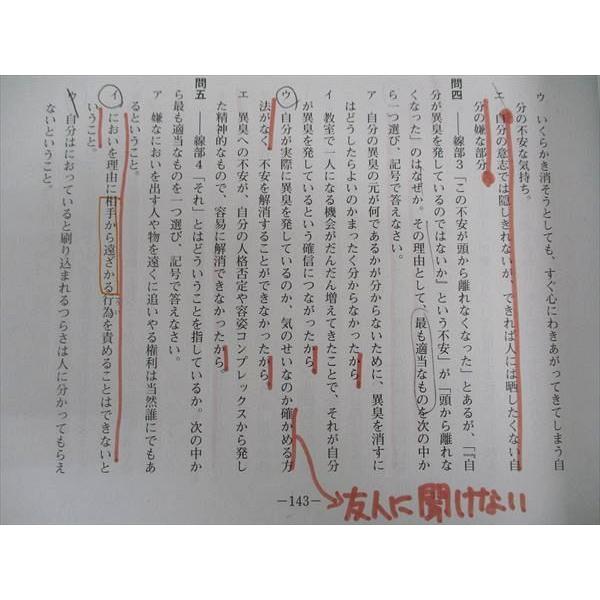 ウ いくらかき消そうとしても、すぐ心にわきあがってきてしまう自
分の不安な気持ち。
エ 自分の意志では隠しきれないが、できれば人には晒したくない自
分の嫌な部分。
問四 ——線部3「この不安が頭から離れなくなった」とあるが、「『自
分が異臭を発しているのではないか』という不安」が「頭から離れな
くなった」のはなぜか。その理由として、最も適当なものを次の中か
ら一つ選び、記号で答えなさい。
ア 自分の異臭の元が何であるかが分からないために、異臭を消すに
はどうしたらよいのかまったく分からなかったから。
イ 教室で一人になる機会がだんだん増えてきたことで、それが自分
が異臭を発しているという確信につながったから。
ウ 自分が実際に異臭を発しているのか、気のせいなのか確かめる方
法がなく、不安を解消することができなかったから。
エ 異臭への不安が、自分の人格否定や容姿コンプレックスから発し
た精神的なもので、容易に解消できなかったから。
問五 ——線部4「それ」とはどういうことを指しているか。次の中か
ら最も適当なものを一つ選び、記号で答えなさい。
ア 嫌なにおいを出す人や物を遠くに追いやる権利は当然誰にでもあ
るということ。
イ においを理由に相手から遠ざかる行為を責めることはできないと
いうこと。
ウ 自分はにおっていると刷り込まれるつらさは人に分かってもらえ
ないということ。
友人に聞けない
—143—